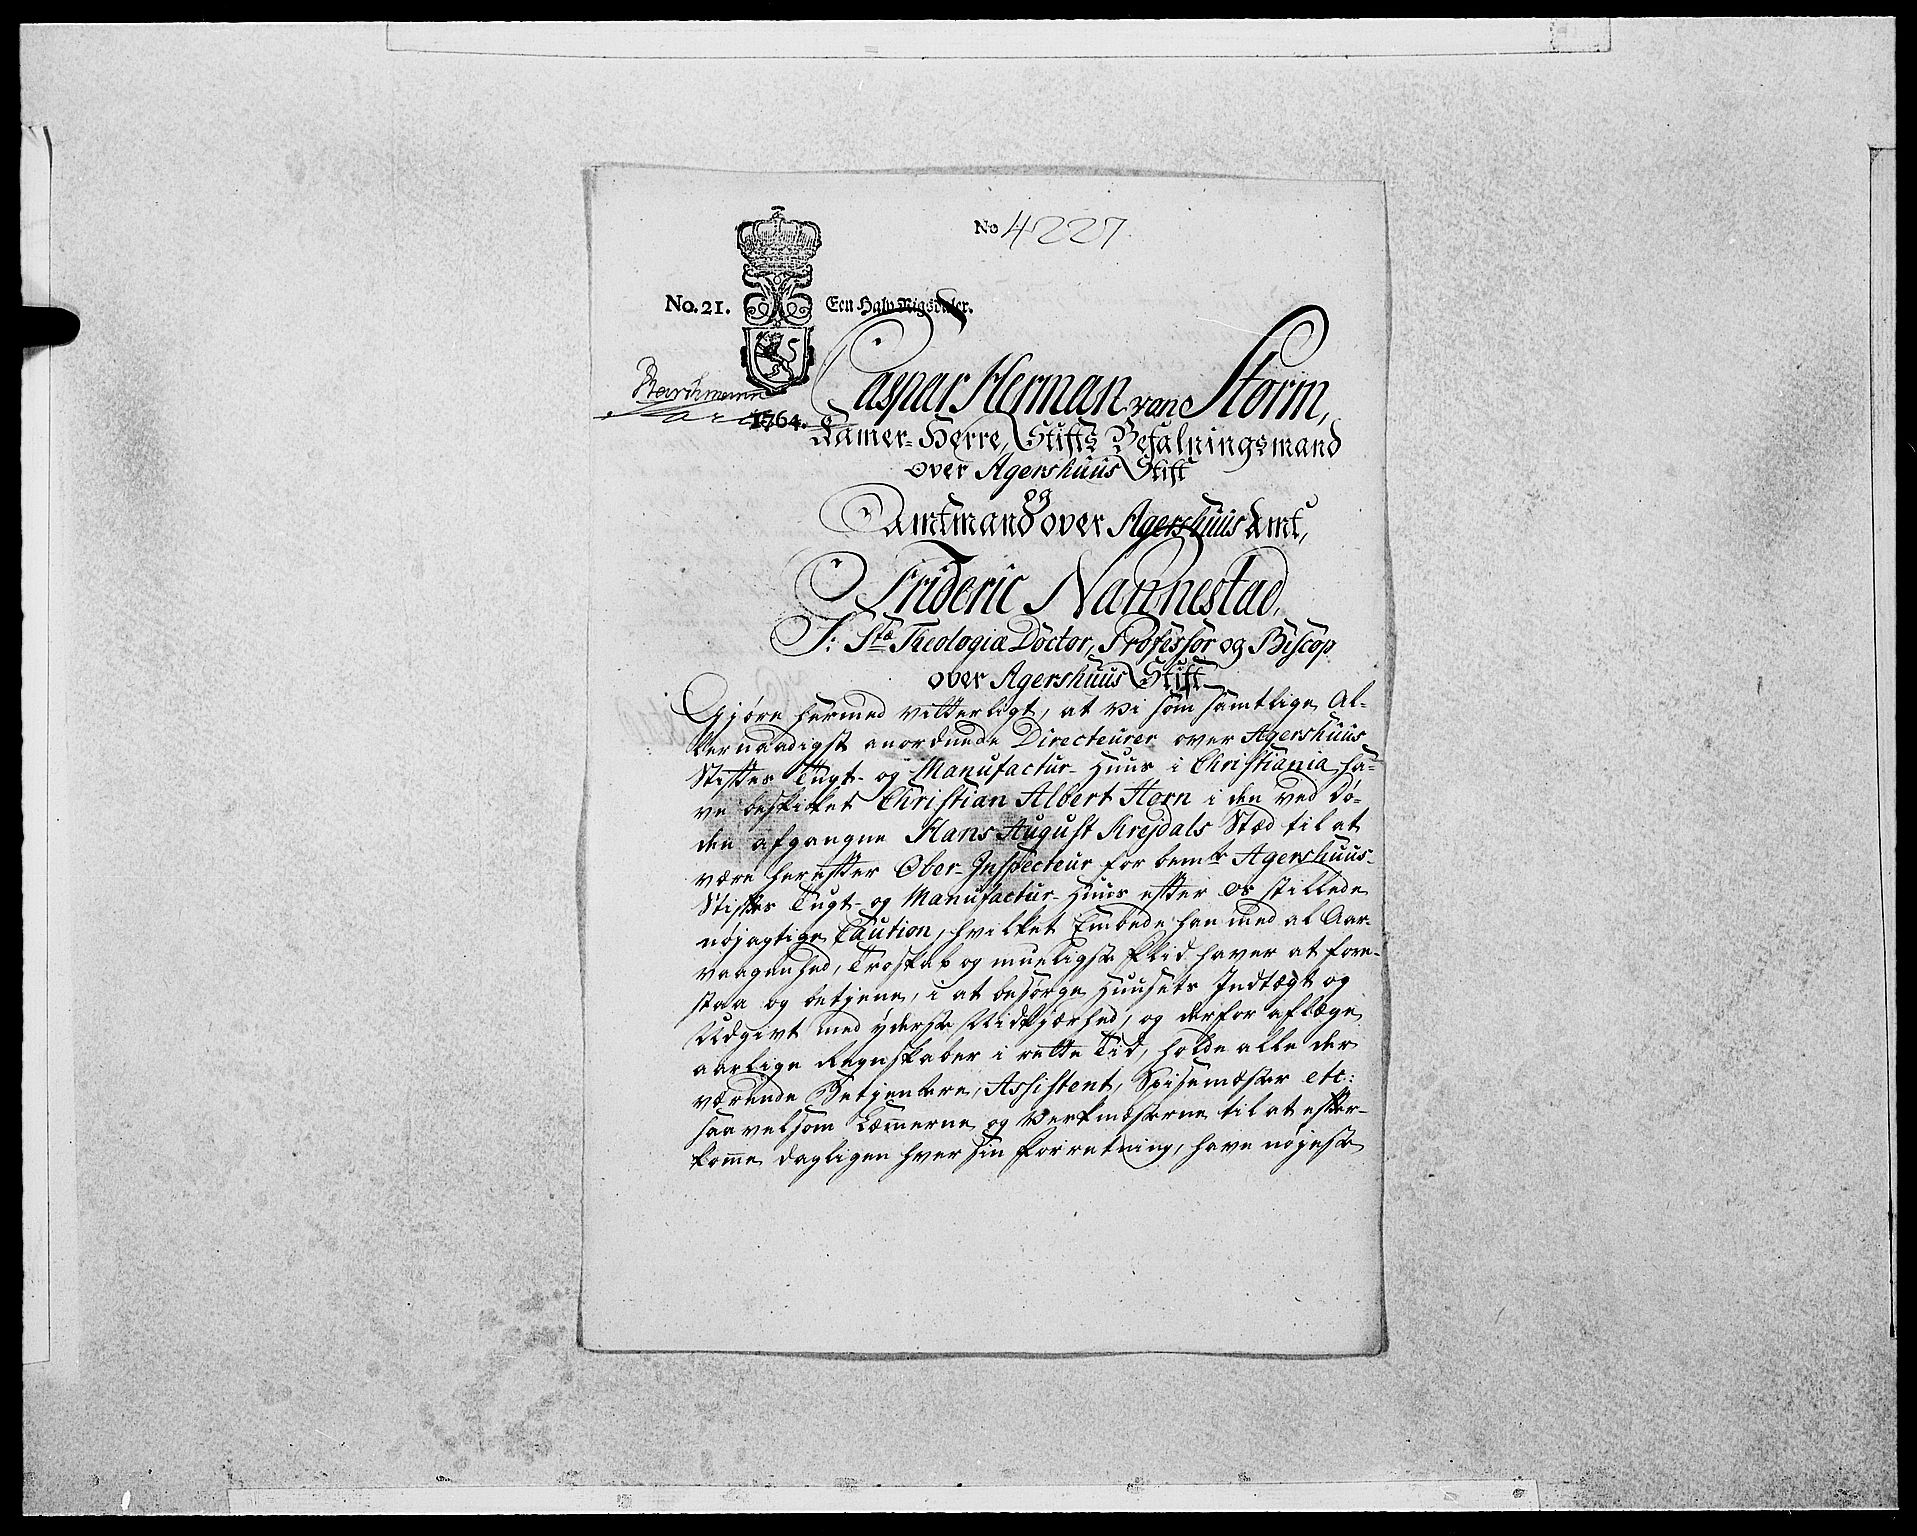 No 4227.
No. 21. Een Halv Rigsdaler.
1764.
Caspar Herman von Storm,
Camer-Herre, Stifts Befalningsmand
over Agershuus Stift
og
Amtmand over Agershuus Amt,
Frideric Nannestad,
S: Stæ Theologiæ Doctor, Professor og Biscop
over Agershuus Stift
Gjøre hermed vitterligt, at vi som samtlige Al-
lernaadigst anordnede Directeurer over Agershuus
Stiftes Tugt- og Manufactur-Huus i Christiania, ha-
ve beskikket Christian Albert Horn i den ved Dø-
den afgangne Hans August Krejdals Stæd til at
være herefter Ober-Inspecteur for bemte Agershuus-
Stiftes Tugt- og Manufactur-Huus efter os stillede
nøjagtige Caution, hvilket Embede han med al Aar-
vaagenhed, Troskab og mueligste Flid haver at fore-
staa og betjene, i at besørge Huusets Indtægt og
Udgivt med yderste Vidkjærhed, og derfor aflægge
aarlige Regnskaber i rette Tid, holde alle der
værende Betjentere, Assistent, Spisemæster etc:
saavelsom Læmerne og Verkmæsterne til at efter-
komme dagligen hver sin Forretning, have nøjeste